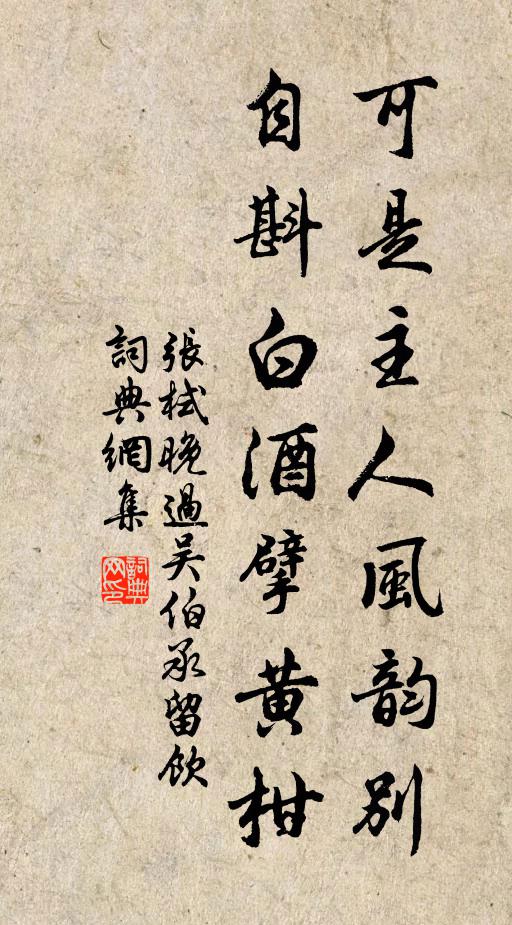 可是主人風韵别
自斟白酒擘黄柑
張栻晚過吴伯承留飲
詞典網集
詞典网印